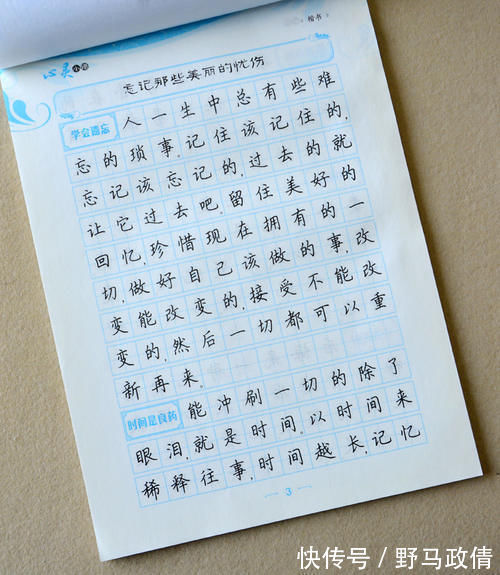 心灵小语
〈楷书〉
忘记那些美丽的忧伤
学会遗忘
人一生中总有些难
忘的琐事,记住该记住的,
忘记该忘记的,过去的就
让它过去吧,留住美好的
回忆,珍惜现在拥有的一
切,做好自己该做的事,改
变能改变的,接受不能改
变的,然后一切都可以重
新再来。
时间是良药
能冲刷一切的除了
眼泪,就是时间,以时间来
稀释往事,时间越长,记忆
3
快传号 / 野马政倩